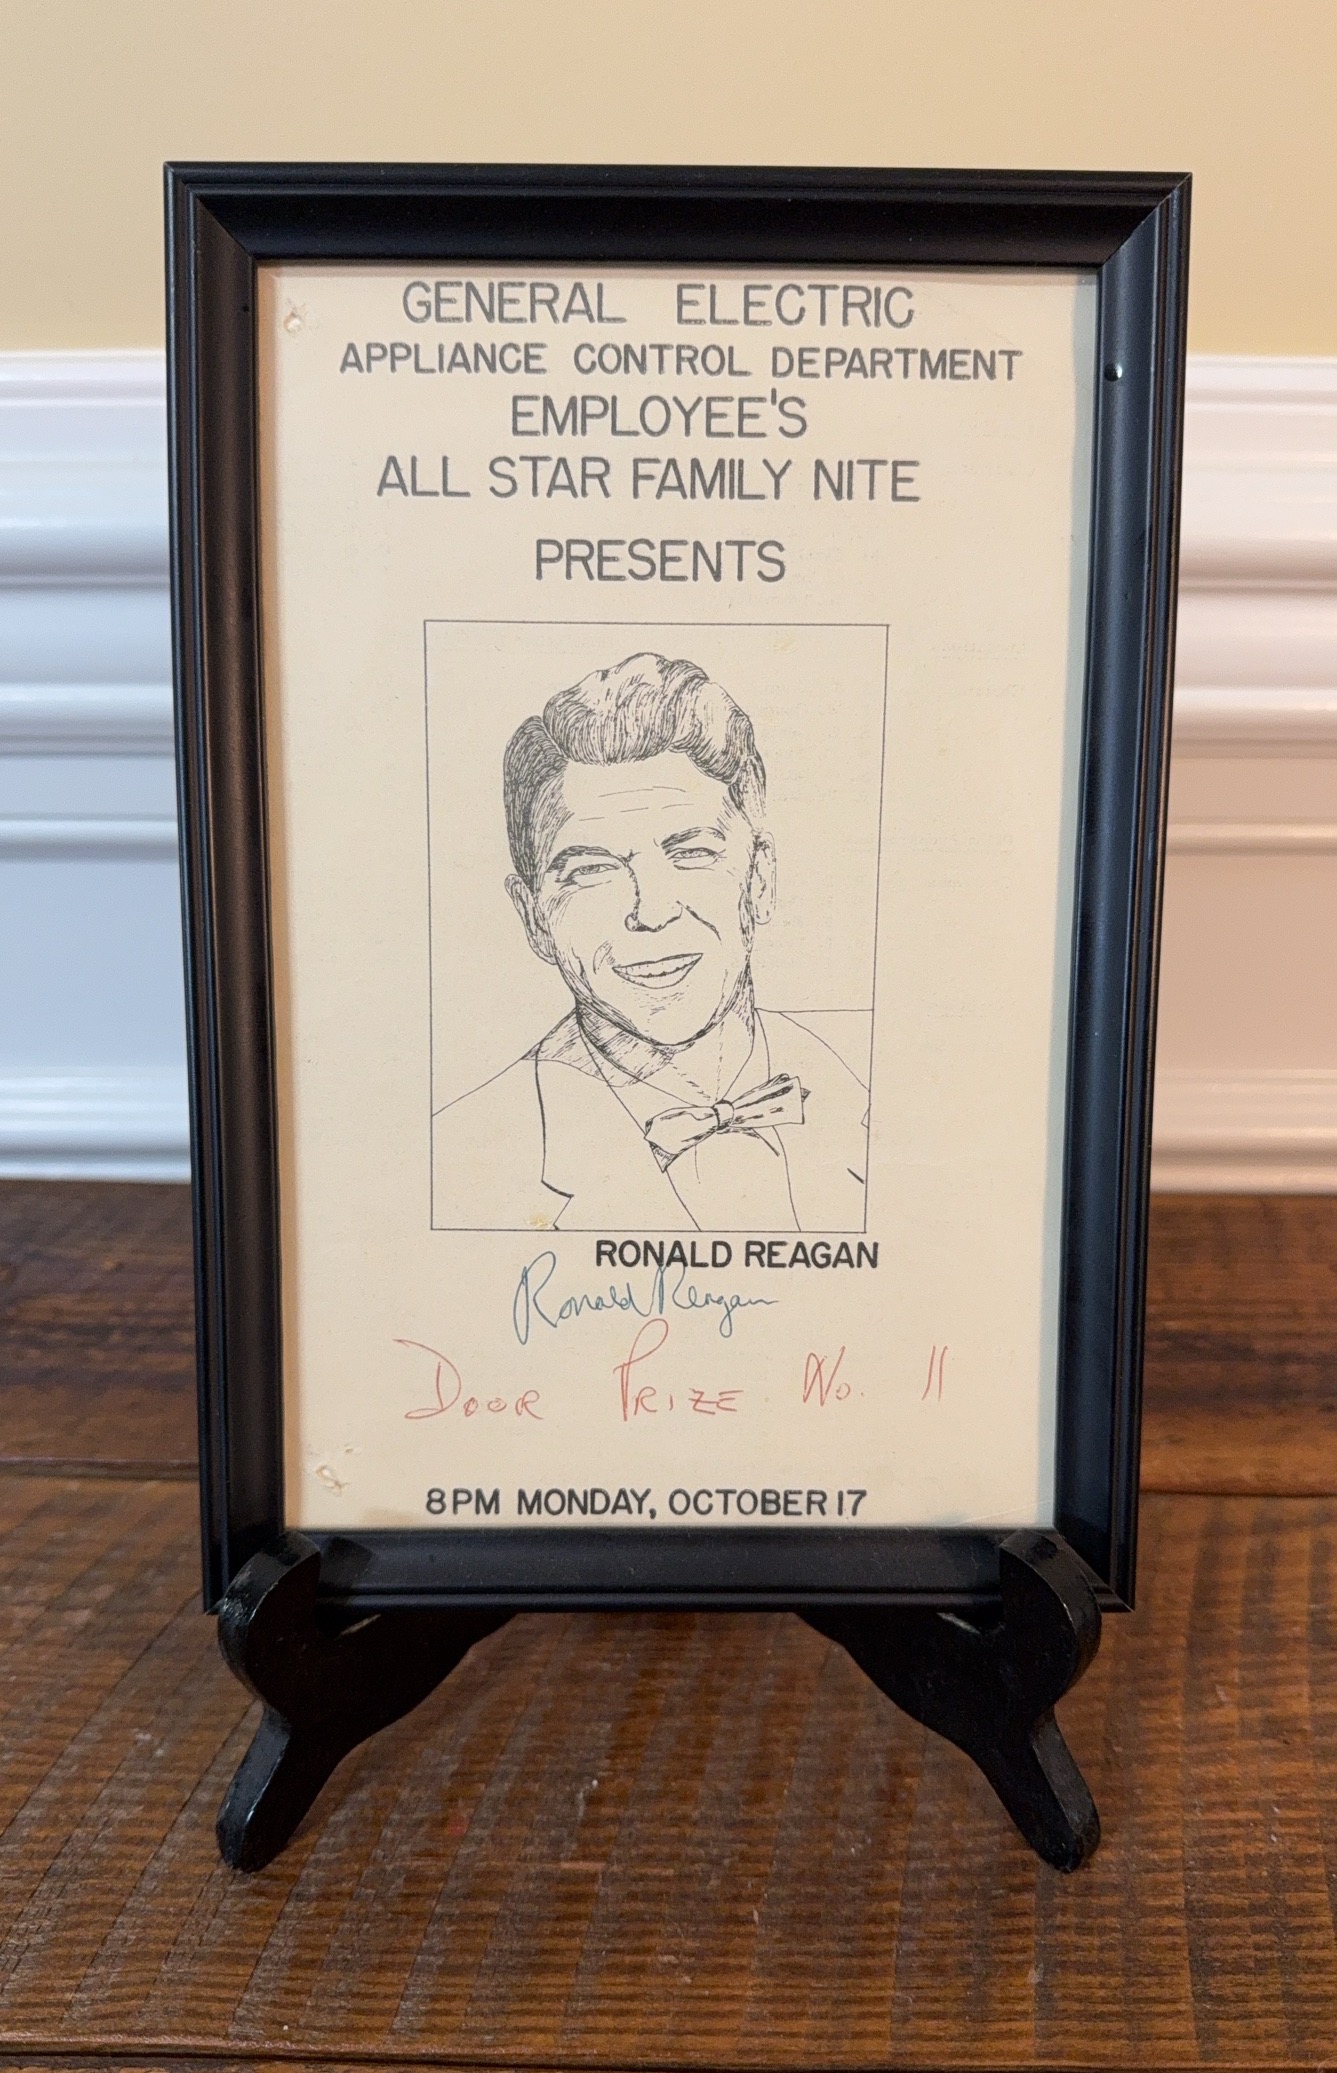 GENERAL ELECTRIC
APPLIANCE CONTROL DEPARTMENT
EMPLOYEE'S
ALL STAR FAMILY NITE
PRESENTS
RONALD REAGAN
Ronald Reagan
DOOR PRIZE No. 11
8PM MONDAY, OCTOBER 17